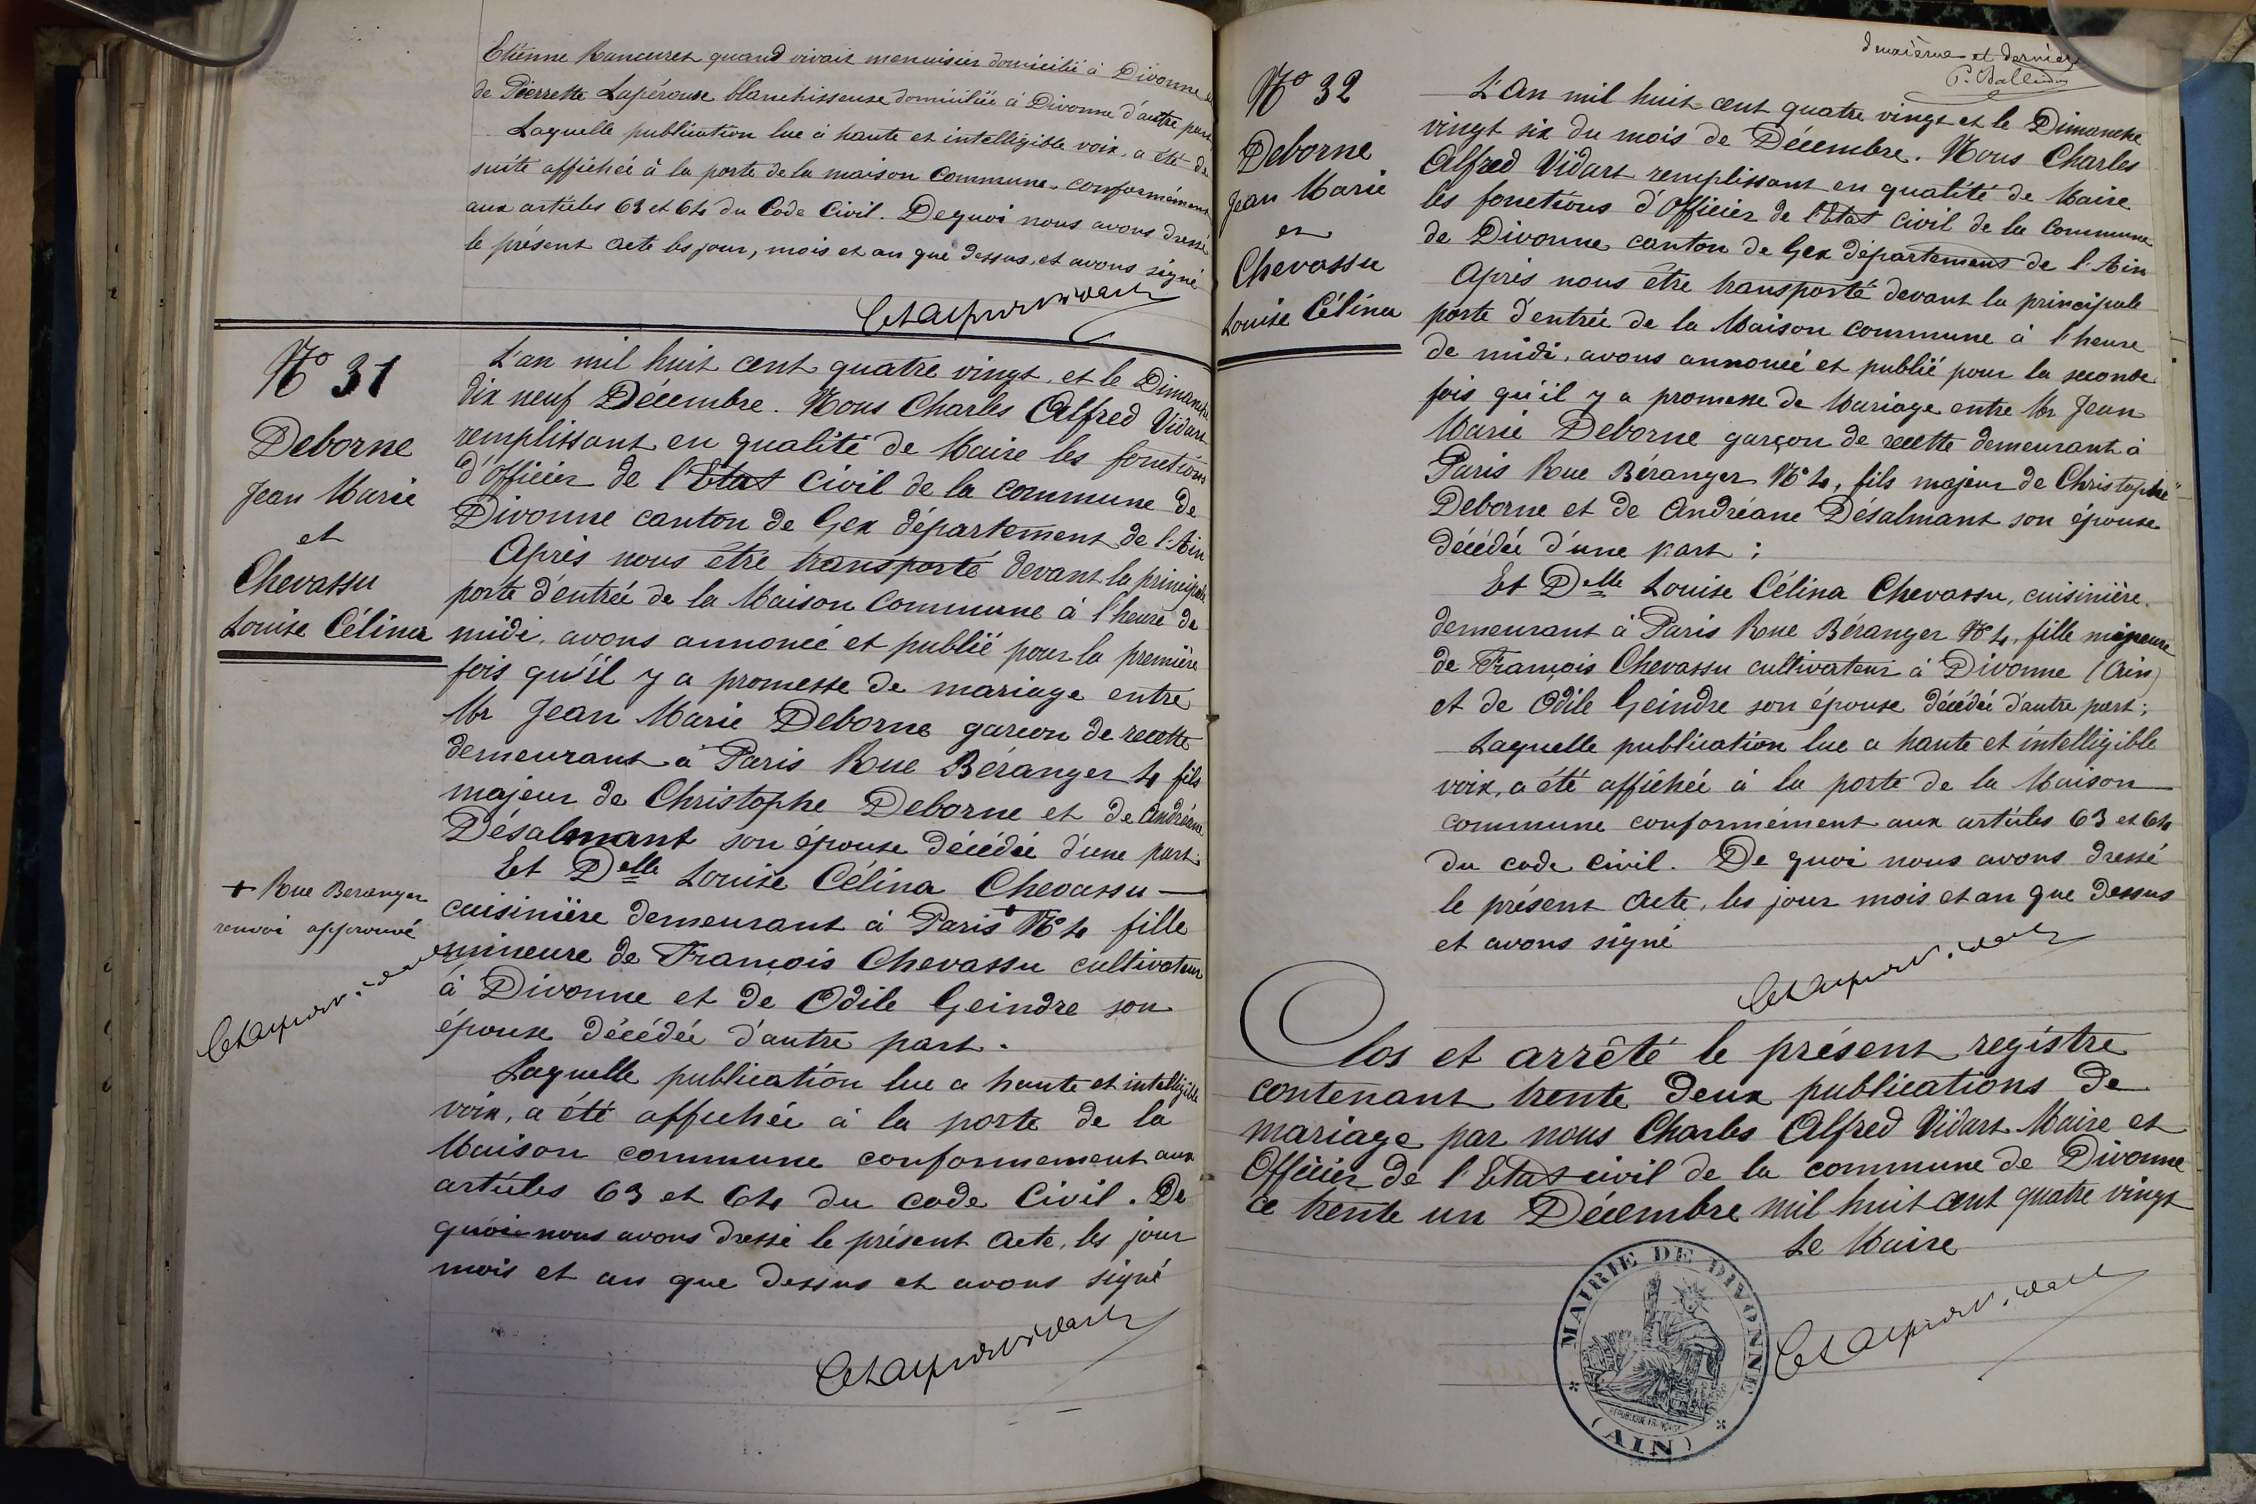 Etienne Rancurel quand vivait menuisier domicilié à Divonne et
de Pierrette Lapérouse blanchisseuse domiciliée à Divonne d'autre part
Laquelle publication lue à haute et intelligible voix, a été de
suite affichée à la porte de la maison commune, conformément
aux articles 63 et 64 du Code Civil. De quoi nous avons dressé
le présent acte les jour, mois et an que dessus, et avons signé
N° 31
Deborne
Jean Marie
et
Chevassu
Louise Célina
L'an mil huit cent quatre vingt, et le Dimanche
dix neuf Décembre. Nous Charles Alfred Vidart
remplissant en qualité de Maire les fonctions
d'officier de l'Etat Civil de la commune de
Divonne canton de Gex département de l'Ain
Après nous être transporté devant la principale
porte d'entrée de la Maison Commune à l'heure de
midi, avons annoncé et publié pour la première
fois qu'il y a promesse de mariage entre
Mr Jean Marie Deborne garçon de recette
demeurant à Paris Rue Béranger 4 fils
majeur de Christophe Deborne et de Andréane
Désalmant son épouse décédée d'une part.
Et Delle Louise Célina Chevassu
cuisinière demeurant à Paris + N° 4 fille
mineure de François Chevassu cultivateur
à Divonne et de Odile Geindre son
épouse décédée d'autre part.
+ Rue Beranger
renvoi approuvé
Laquelle publication lue a haute et intelligible
voix, a été affichée à la porte de la
Maison commune conformement aux
articles 63 et 64 du code Civil. De
quoi nous avons dressé le présent acte, les jour
mois et an que dessus et avons signé
deuxième et dernière
N° 32
Deborne
Jean Marie
et
Chevassu
Louise Célina
L'An mil huit cent quatre vingt et le Dimanche
vingt six du mois de Décembre. Nous Charles
Alfred Vidart remplissant en qualité de Maire
les fonctions d'officier de l'Etat civil de la Commune
de Divonne canton de Gex département de l'Ain
Après nous être transporté devant la principale
porte d'entrée de la Maison commune à l'heure
de midi, avons annoncé et publié pour la seconde
fois qu'il y a promesse de Mariage entre Mr Jean
Marie Deborne garçon de recette demeurant à
Paris Rue Béranger N° 4, fils majeur de Christophe
Deborne et de Andréane Désalmant son épouse
décédée d'une part ;
Et Delle Louise Célina Chevassu, cuisinière
demeurant à Paris Rue Béranger N° 4, fille mineure
de François Chevassu cultivateur à Divonne (Ain)
et de Odile Geindre son épouse décédée d'autre part ;
Laquelle publication lue a haute et intelligible
voix, a été affichée à la porte de la Maison
commune conformément aux articles 63 et 64
du code civil. De quoi nous avons dressé
le présent acte, les jour mois et an que dessus
et avons signé
Clos et arrêté le présent registre
contenant trente deux publications de
mariage par nous Charles Alfred Vidart Maire et
Officier de l'Etat civil de la commune de Divonne
ce trente un Décembre mil huit cent quatre vingt
Le Maire
MAIRIE DE DIVONNE
RÉPUBLIQUE FRANÇAISE
(AIN)